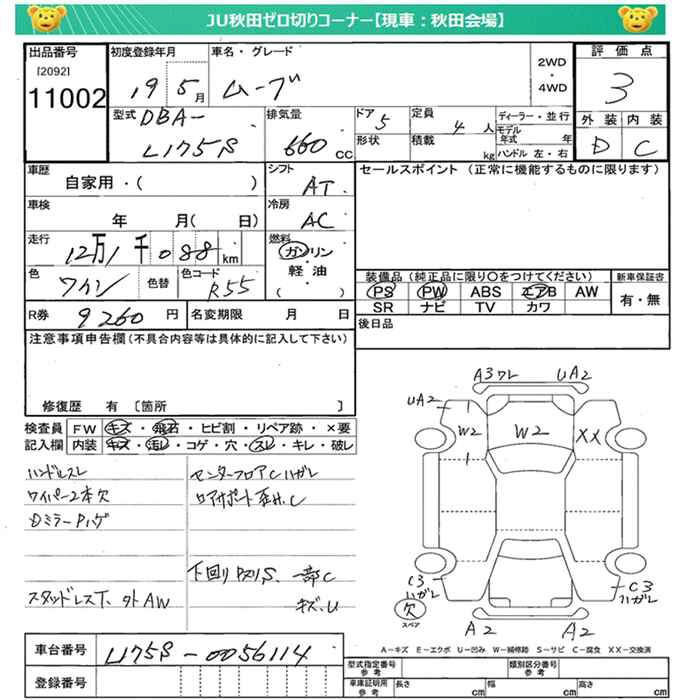 JU秋田ゼロ切りコーナー【現車：秋田会場】
出品番号 初度登録年月 車名・グレード 2WD ・ 4WD 評価点
[2092]
11002 19 5月 ムーブ 3
型式 DBA- L175S 排気量 660 CC ドア 5 定員 4人 ディーラー・並行 外装 内装
形状 積載 kg モデル年式 年 ハンドル 左・右 D C
車歴 自家用・( ) シフト AT セールスポイント (正常に機能するものに限ります)
車検 年 月( 日) 冷房 AC
走行 12万1千088km 燃料 ガソリン・軽油・( )
色 ワイン 色替 色コード R55
装備品 (純正品に限り○をつけてください) 新車保証書
PS PW ABS エアB AW 有・無
SR ナビ TV カワ
R券 9260円 名変期限 月 日 後日品
注意事項申告欄(不具合内容等は具体的に記入して下さい)
修復歴 有 〔箇所 〕
検査員 FW キズ・飛石・ヒビ割・リペア跡・×要
記入欄 内装 キズ・汚レ・コゲ・穴・スレ・キレ・破レ
ハンドルスレ センターフロアCハガレ
ワイパー2本欠 ロアサポート歪H.C
DミラーPハゲ
下回りサビS、一部C
スタッドレス下、外AW キズ、U
A3ワレ UA2
UA2
W2 W2 XX
C3 ハガレ C3 ハガレ
欠
スペア
A2 A2
A－キズ E－エクボ U－凹み W－補修跡 S－サビ C－腐食 XX－交換済
車台番号 L175S-0056114
登録番号
型式指定番号 参考 類別区分番号 参考
車庫証明用 参考 長さ cm 幅 cm 高さ cm